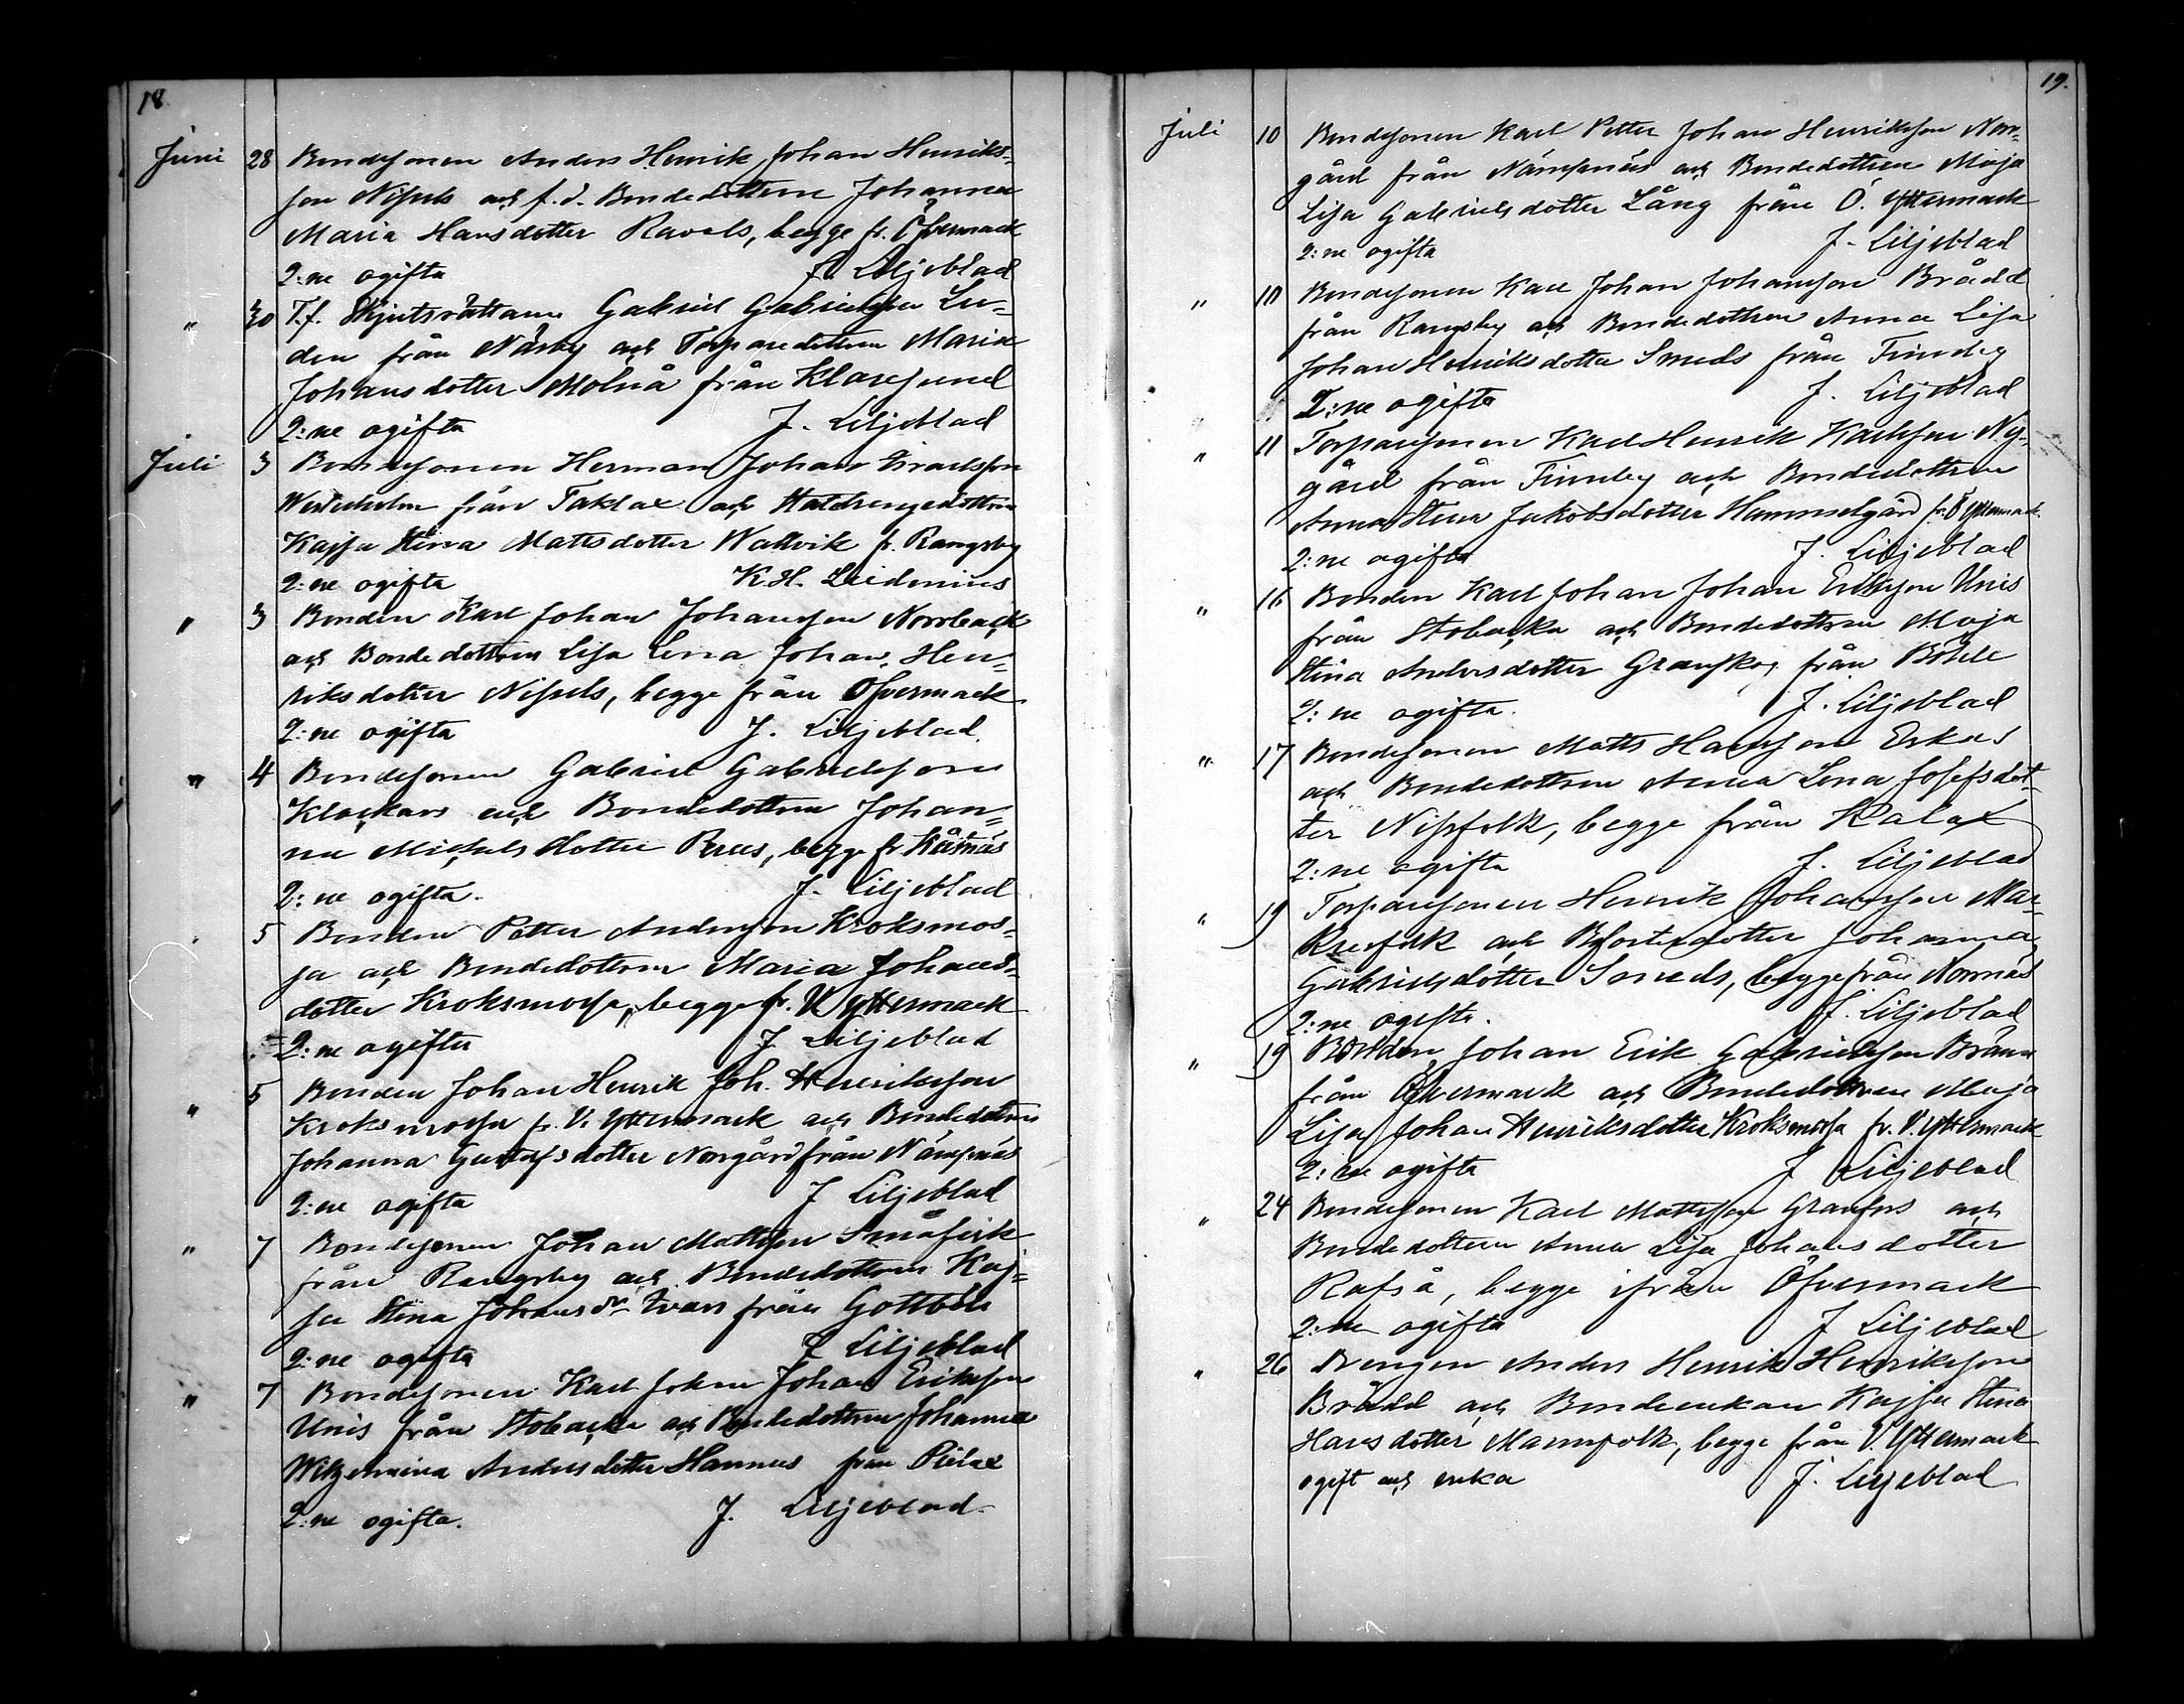 18.
Juni 28 Bondesonen Anders Henrik Johan Henriks-
son Nissuls och f. d. Bondedottern Johanna
Maria Hansdotter Ravals, begge fr. Öfvermark
2:ne ogifta J. Liljeblad
" 30 T.f. Skjutsrättaren Gabriel Gabrielsson Lin-
den från Näsby och Torparedottern Maria
Johansdotter Molnå från Klaresund
2:ne ogifta J. Liljeblad
Juli 3 Bondesonen Herman Johan Israelsson
Westerholm från Taklax och
Kajsa Stina Mattsdotter Wattvik fr. Rangsby
2:ne ogifta K.H. Lidenius
" 3 Bonden Karl Johan Johansson Norrback
och Bondedottern Lisa Lena Johan Hen-
riksdotter Nissuls, begge från Öfvermark
2:ne ogifta J. Liljeblad
" 4 Bondesonen Gabriel Gabrielsson
Klockars och Bondedottern Johan-
na Michelsdotter Reus, begge fr. Kåtnäs
2:ne ogifta. J. Liljeblad
" 5 Bonden Petter Andersson Kroksmos-
sa och Bondedottern Maria Johans-
dotter Kroksmossa, begge fr. V. Yttermark
2:ne ogifta J. Liljeblad
" 5 Bonden Johan Henrik Joh. Henriksson
Kroksmossa fr. V. Yttermark och Bondedottern
Johanna Gustafsdotter Norrgård från Nämpnäs
2:ne ogifta J Liljeblad
" 7 Bondesonen Johan Mattsson Småfisk
från Rangsby och Bondedottern Kaj-
sa Stina Johansdr Ivars från Gottböle
2:ne ogifta J Liljeblad
" 7 Bondesonen Karl Johan Johan Eriksson
Unis från Stobacka och Bondedottern Johanna
Wilhelmina Andersdotter Hannus från Pielax
2:ne ogifta. J. Liljeblad
19.
Juli 10 Bondesonen Karl Petter Johan Henriksson Norr-
gård från Nämpnäs och Bondedottern Maja
Lisa Gabrielsdotter Lång från Ö. Yttermark
2:ne ogifta J. Liljeblad
" 10 Bondesonen Karl Johan Johansson Brådd
från Rangsby och Bondedottern Anna Lisa
Johan Henriksdotter Smeds från Finnby
2:ne ogifta J. Liljeblad
" 11 Torparesonen Karl Henrik Karlsson Ny-
gård från Finnby och Bondedottern
Anna Stina Jakobsdotter Hammelgård fr. Ö Yttermark.
2:ne ogifta J. Liljeblad
" 16 Bonden Karl Johan Johan Eriksson Unis
från Stobacka och Bondedottern Maja
Stina Andersdotter Granskog från Böle
2:ne ogifta. J. Liljeblad
" 17 Bondesonen Matts Hansson Erkas
och Bondedottern Anna Lena Josefsdot-
ter Nissfolk, begge från Kalax
2:ne ogifta J. Liljeblad
" 19 Torparesonen Henrik Johansson Mar-
kusfolk och Johanna
Gabrielsdotter Smeds, begge från Norrnäs
2:ne ogifta. J. Liljeblad
" 19 Bonden Johan Erik Gabrielsson Bränn
från Öfvermark och Bondedottern Maja
Lisa Johan Henriksdotter Kroksmossa fr. V. Yttermark
2:ne ogifta J Liljeblad
" 24 Bondesonen Karl Mattsson Granfors och
Bondedottern Anna Lisa Johansdotter
Rafså, begge ifrån Öfvermark
2:ne ogifta J Liljeblad
" 26 Drengen Anders Henrik Henriksson
Brådd och Bondeenkan Kajsa Stina
Hansdotter Mannfolk, begge från V. Yttermark
ogift och enka J. Liljeblad